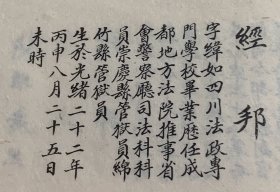 經邦
字緯如四川法政專
門學校畢業歷任成
都地方法院推事省
會警察廳司法科科
員崇慶縣管獄員綿
竹縣管獄員
生於光緒二十二年
丙申八月二十五日
未時